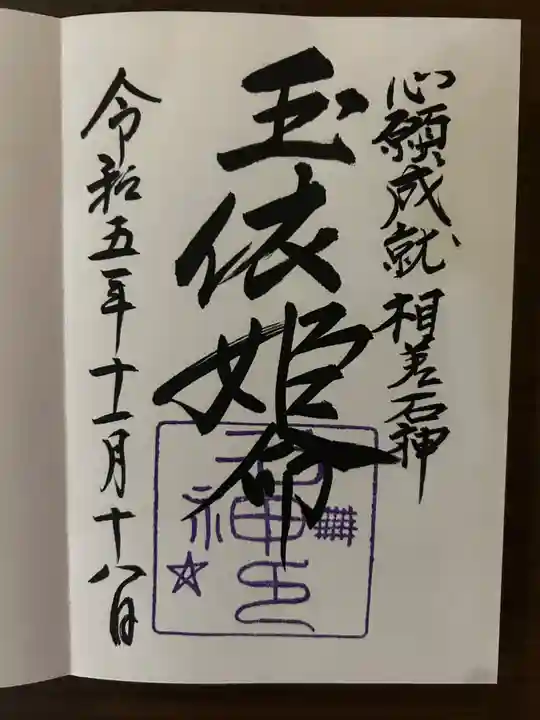 心願成就 相差石神
玉依姫命
令和五年十一月十八日